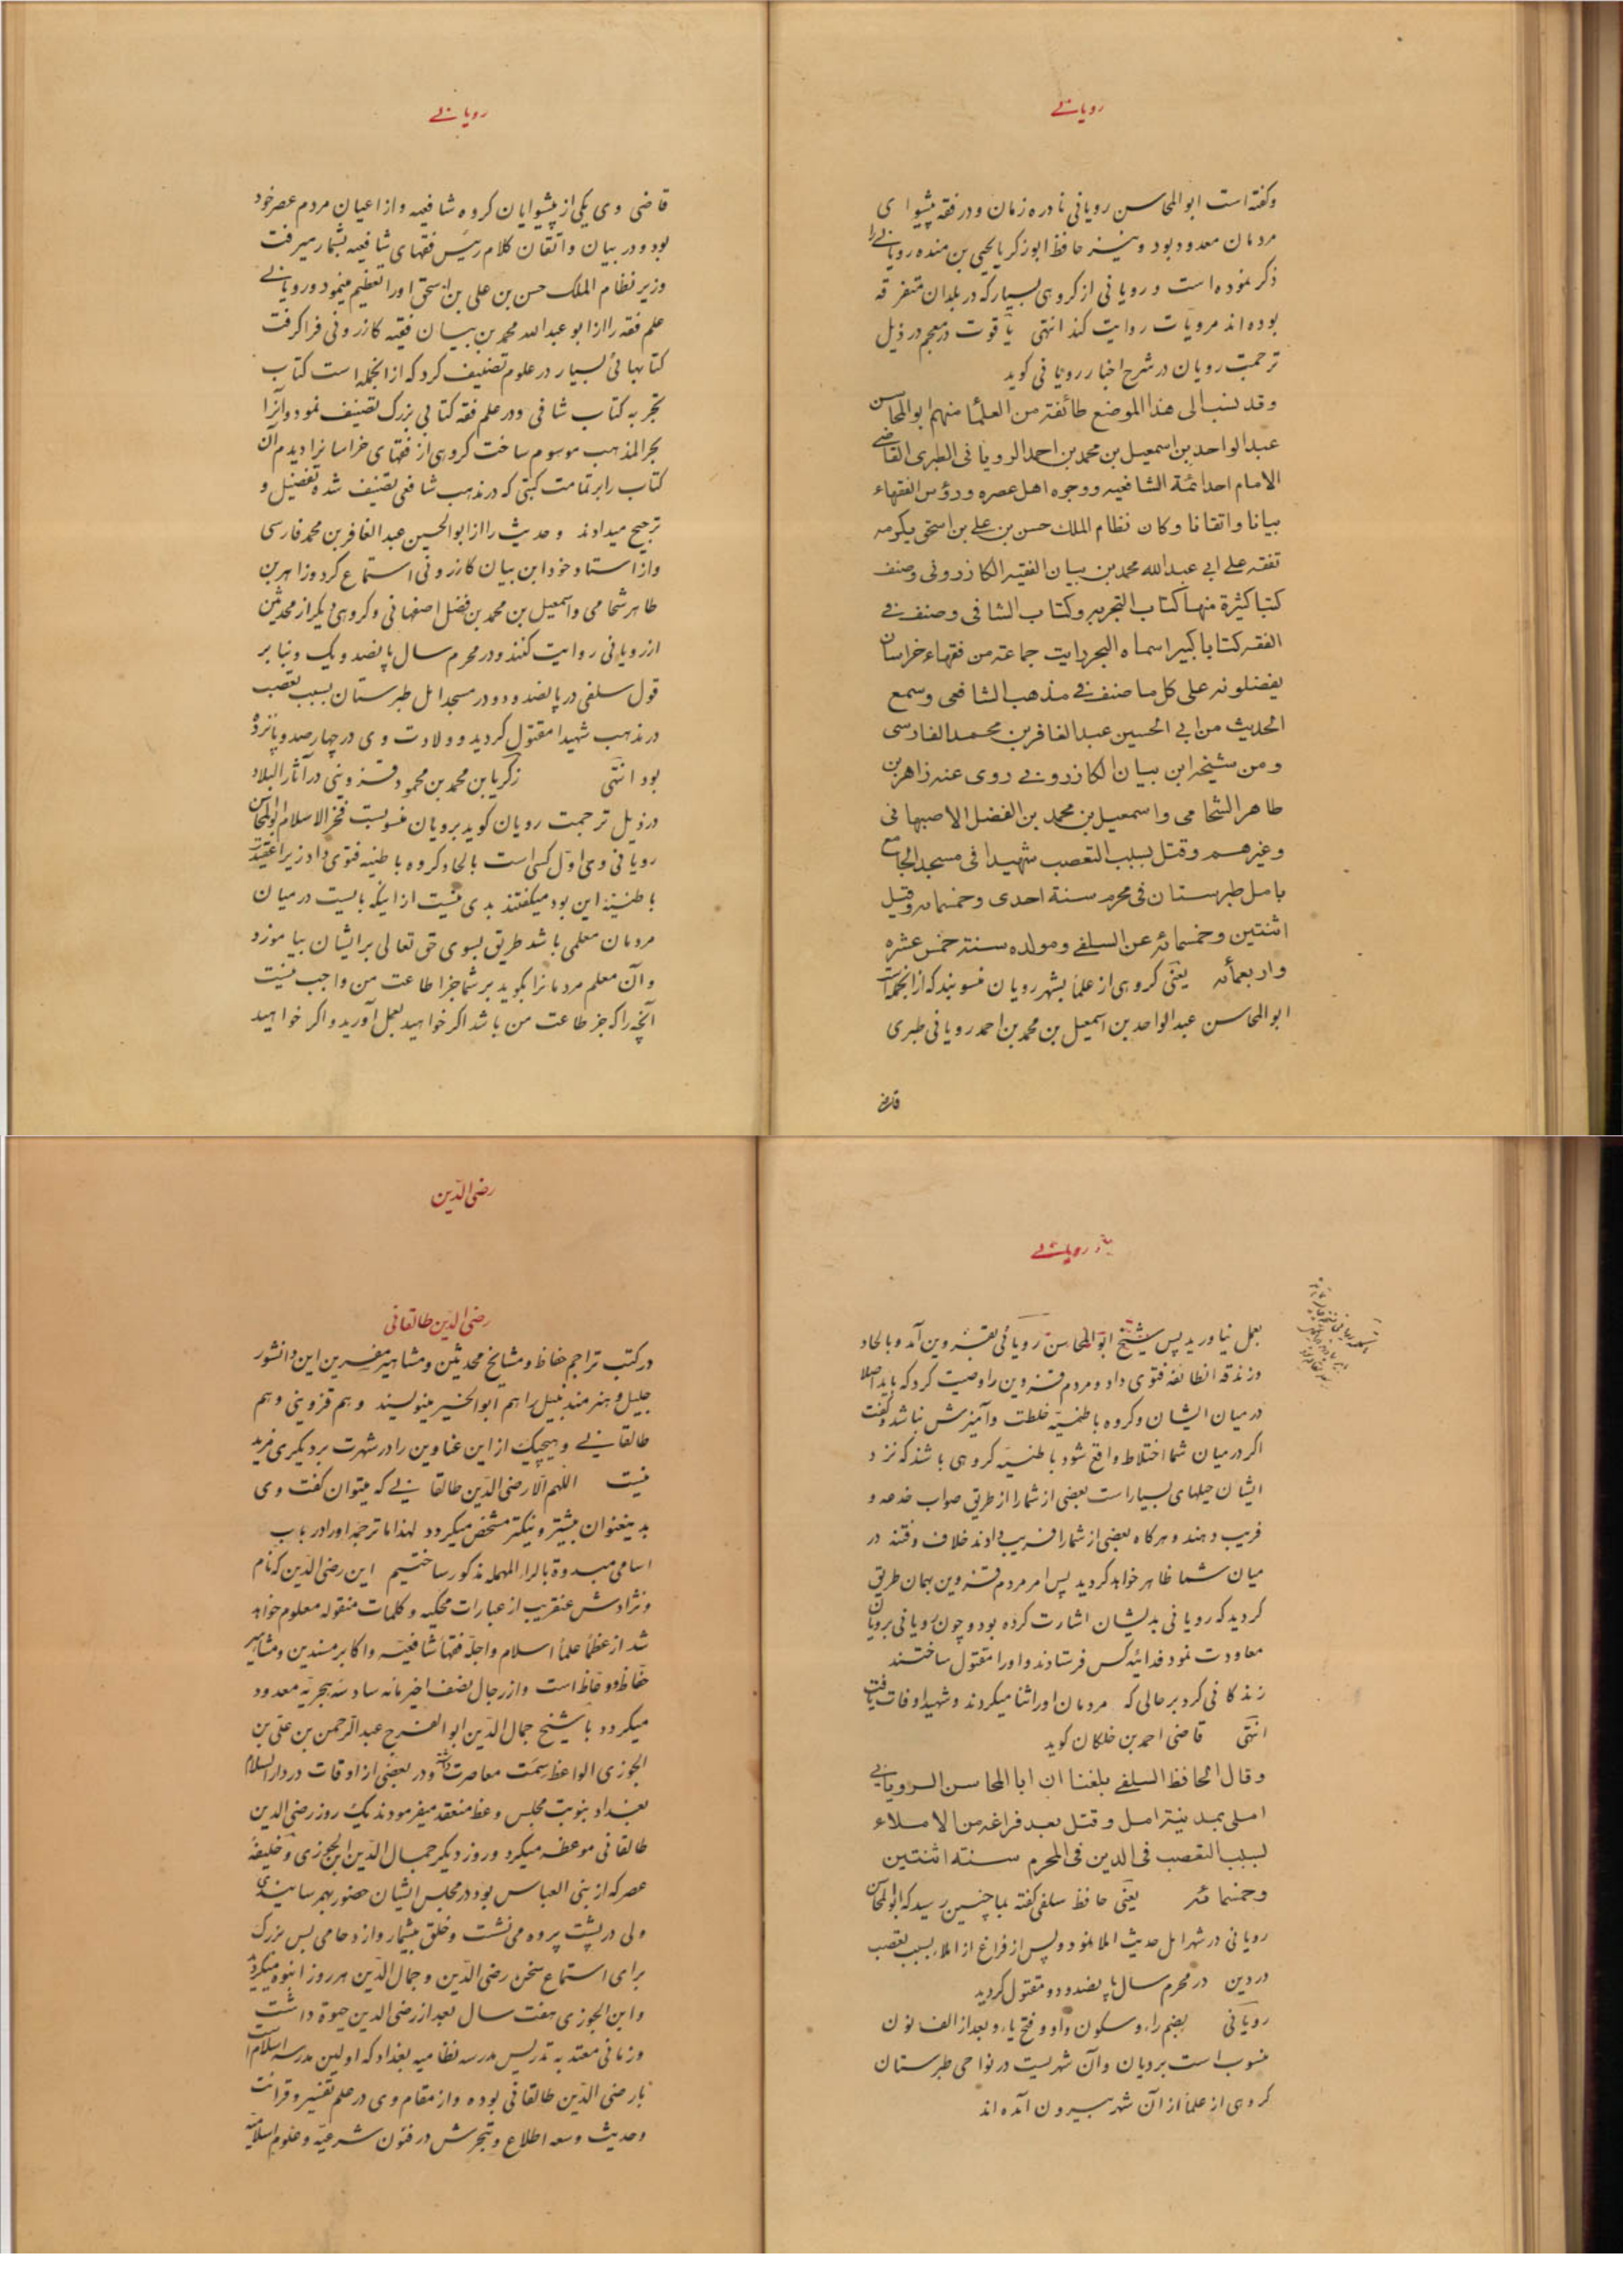 رویانے
وکفته است ابوالمحاسن رویانی نادره زمان و در فقه پیشوای
مردمان معدود بود و نیز حافظ ابوزکریا یحیی بن منده رویانے را
ذکر نموده است و رویانی از کروهی بسیار که در بلدان متفرقه
بوده اند مرویات روایت کند انتهی یاقوت در معجم در ذیل
ترجمت رویان در شرح اخبار رویانی کوید
وقد ینسب الی هذا الموضع طائفة من العلما منهم ابوالمحاسن
عبدالواحد بن اسمعیل بن محمد بن احمد الرویانی الطبری القاضے
الامام احد ائمة الشافعیه ووجوه اهل عصره ورؤس الفقهاء
بیانا واتقانا وکان نظام الملک حسن بن علے بن اسحق یکرمه
تفقه علے ابے عبدالله محمد بن بیان الفقیه الکازرونی وصنف
کتبا کثرة منها کتاب التجربه وکتاب الشافی وصنف فے
الفقه کتابا کبیرا سماه البحر رایت جماعته من فقهاء خراسان
یفضلونه علی کل ما صنف فے مذهب الشافعی وسمع
الحدیث من ابے الحسین عبدالغافر بن محمد الفارسی
ومن شیخه ابن بیان الکازرونے روی عنه زاهر بن
طاهر الشحامی واسمعیل بن محمد بن الفضل الاصبهانی
وغیرهم وقتل بسبب التعصب شهیدا فی مسجد الجامع
بامل طبرستان فی محرم سنة احدی وخمسمائه وقیل
اثنتین وخمسمائه عن السلفے ومولده سنة خمس عشره
واربعمأئه یعنی کروهی از علما بشهر رویان منسوبند که از انجمله است
ابوالمحاسن عبدالواحد بن اسمعیل بن محمد بن احمد رویانی طبری
قاضے
رویانے
قاضی وی یکی از پیشوایان کروه شافعیه و از اعیان مردم عصر خود
بود و در بیان و اتقان کلام رئیس فقهای شافعیه بشمار میرفت
وزیر نظام الملک حسن بن علی بن اسحق او را تعظیم مینمود و رویانے
علم فقه را از ابوعبدالله محمد بن بیان فقیه کازرونی فرا کرفت
کتابهائی بسیار در علوم تصنیف کرد که از انجمله است کتاب
تجربه کتاب شافی و در علم فقه کتابی بزرک تصنیف نمود و آنرا
بحر المذهب موسوم ساخت کروهی از فقهای خراسانرا دیدم آن
کتاب را بر تمامت کتبی که در مذهب شافعی تصنیف شده تفضیل و
ترجیح میدادند و حدیث را از ابوالحسین عبدالغافر بن محمد فارسی
و از استاد خود ابن بیان کازرونی استماع کرد و زاهر بن
طاهر شحامی و اسمعیل بن محمد بن فضل اصفهانی و کروهی دیکر از محدثین
از رویانی روایت کنند و در محرم سال پانصد و یک و بنابر
قول سلفی در پانصد و دو در مسجد امل طبرستان بسبب تعصب
در مذهب شهیدا مقتول کردید و ولادت وی در چهارصد و پانزده
بود انتهی زکریا بن محمد بن محمود قزوینی در آثار البلاد
در ذیل ترجمت رویان کوید برویان منسوبست فخر الاسلام ابوالمحاسن
رویانی وی اول کسی است بالحاد کروه باطنیه فتوی داد زیرا عقیدت
باطنیه این بود میکفتند بدی نیست از اینکه بایست در میان
مردمان معلمی باشد طریق بسوی حق تعالی برایشان بیاموزد
و آن معلم مردمانرا بکوید بر شما جز اطاعت من واجب نیست
آنچه را که جز طاعت من باشد اکر خواهید بعمل آورید و اکر خواهید
رویانے
بعمل نیاورید پس شیخ ابوالمحاسن رویانی بقزوین آمد و بالحاد
و زندقه انطائفه فتوی داد و مردم قزوین را وصیت کرد که باید اصلا
در میان ایشان و کروه باطنیه خلطت و آمیزش نباشد و کفت
اکر در میان شما اختلاط واقع شود باطنیه کروهی باشند که نزد
ایشان حیلهای بسیار است بعضی از شما را از طریق صواب خدعه و
فریب دهند و هرکاه بعضی از شما را فریب دادند خلاف و فتنه در
میان شما ظاهر خواهد کردید پس امر مردم قزوین بهمان طریق
کردید که رویانی بدیشان اشارت کرده بود و چون رویانی برویان
معاودت نمود فدائیه کس فرستادند و او را مقتول ساختند
زندکانی کرد بر حالی که مردمان او را ثنا میکردند و شهیدا وفات یافت
انتهی قاضی احمد بن خلکان کوید
وقال الحافظ السلفے بلغنا ان اباالمحاسن الرویانے
املی بمدینة امل وقتل بعد فراغه من الاملاء
بسبب التعصب فی الدین فی المحرم سنة اثنتین
وخمسمائه یعنی حافظ سلفی کفته بما چنین رسید که ابوالمحاسن
رویانی در شهر امل حدیث املا نمود و پس از فراغ از املاء بسبب تعصب
در دین در محرم سال پانصد و دو مقتول کردید
رویانی بضم راء و سکون واو و فتح یاء و بعد از الف نون
منسوب است برویان و آن شهریست در نواحی طبرستان
کروهی از علما از آن شهر بیرون آمده اند
رضی الدین
رضی الدین طالقانی
در کتب تراجم حفاظ و مشایخ محدثین و مشاهیر مفسرین این دانشور
جلیل و هنرمند نبیل را هم ابوالخیر مینویسند و هم قزوینی و هم
طالقانے و هیچیک از این عناوین را در شهرت بر دیکری مزید
نیست اللهم الا رضی الدین طالقانے که میتوان کفت وی
بدینعنوان بیشتر و نیکتر مشخص میکردد لهذا ما ترجمه او را در باب
اسامی مبدوة بالراء المهمله مذکور ساختیم این رضی الدین که نام
و نژادش عنقریب از عبارات محکیه و کلمات منقوله معلوم خواهد
شد از عظما علما اسلام و اجله فقها شافعیه و اکابر مسندین و مشاهیر
حفاظ و وعاظ است و از رجال نصف اخیر مائه سادسه هجریه معدود
میکردد با شیخ جمال الدین ابوالفرج عبدالرحمن بن علی بن
الجوزی الواعظ سمت معاصرت داشته و در بعضی از اوقات در دار السلام
بغداد بنوبت مجلس وعظ منعقد میفرمودند یک روز رضی الدین
طالقانی موعظه میکرد و روز دیکر جمال الدین ابن الجوزی و خلیفهٔ
عصر که از بنی العباس بود در مجلس ایشان حضور بهم رسانیدی
ولی در پشت پرده می نشست و خلق بیشمار و ازدحامی بس بزرک
برای استماع سخن رضی الدین و جمال الدین هر روز انبوه میکردند
و ابن الجوزی هفت سال بعد از رضی الدین حیوة داشت
و زمانی معتد به تدریس مدرسه نظامیه بغداد که اولین مدرسه اسلام است
با رضی الدین طالقانی بوده و از مقام وی در علم تفسیر و قرائت
و حدیث و سعه اطلاع و تبحرش در فنون شرعیه و علوم اسلامیه